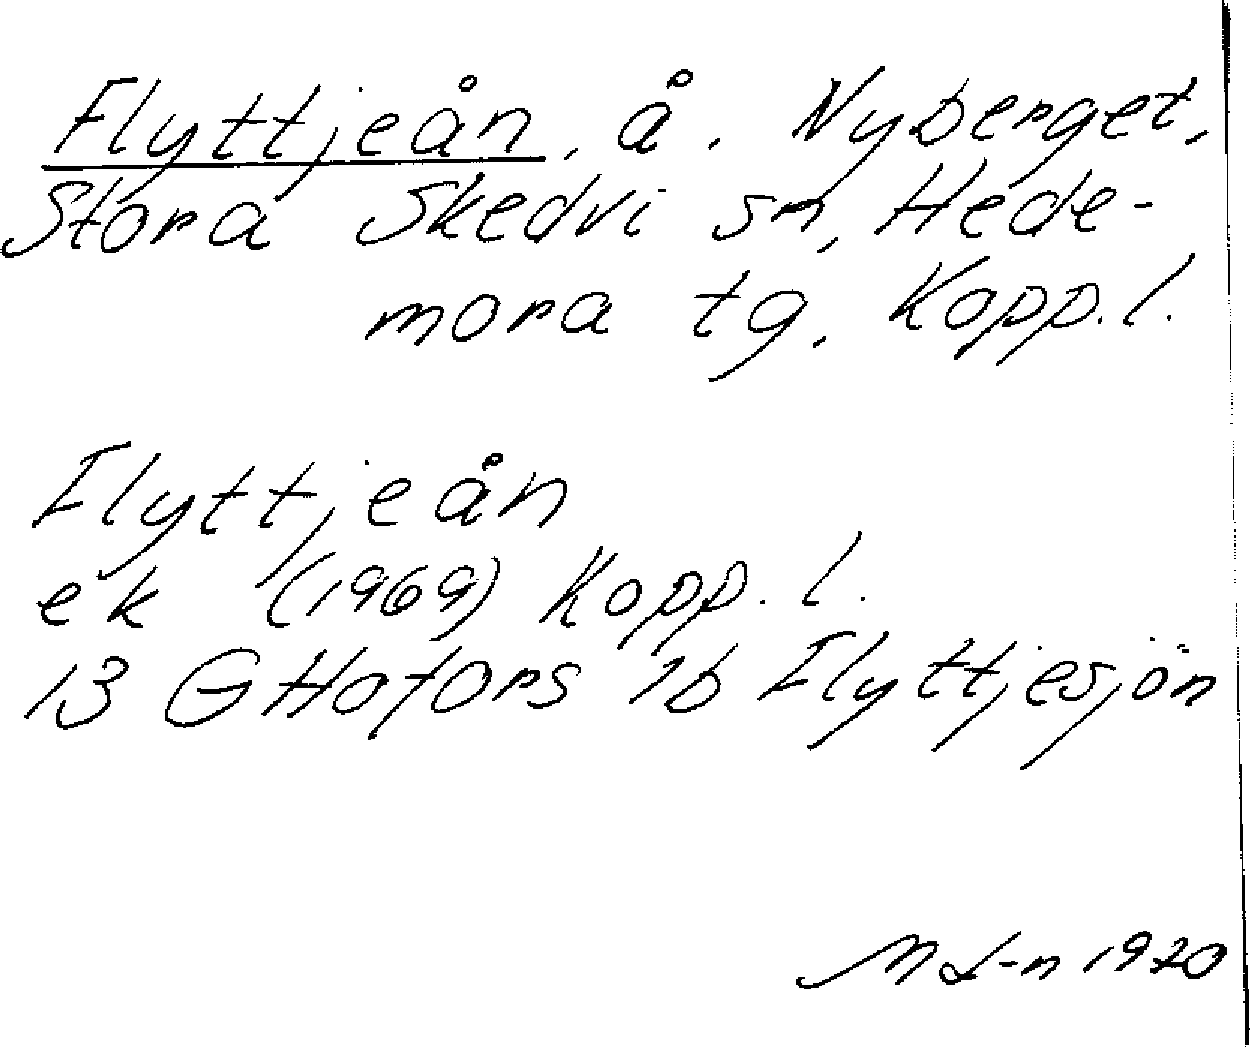 Flyttjeån, å. Nyberget,
Stora Skedvi sn, Hede-
mora tg. Kopp. l.
Flyttjeån
ek (1969) Kopp. l.
13 G Hofors 1b Flyttjesjön
M L-n 1970